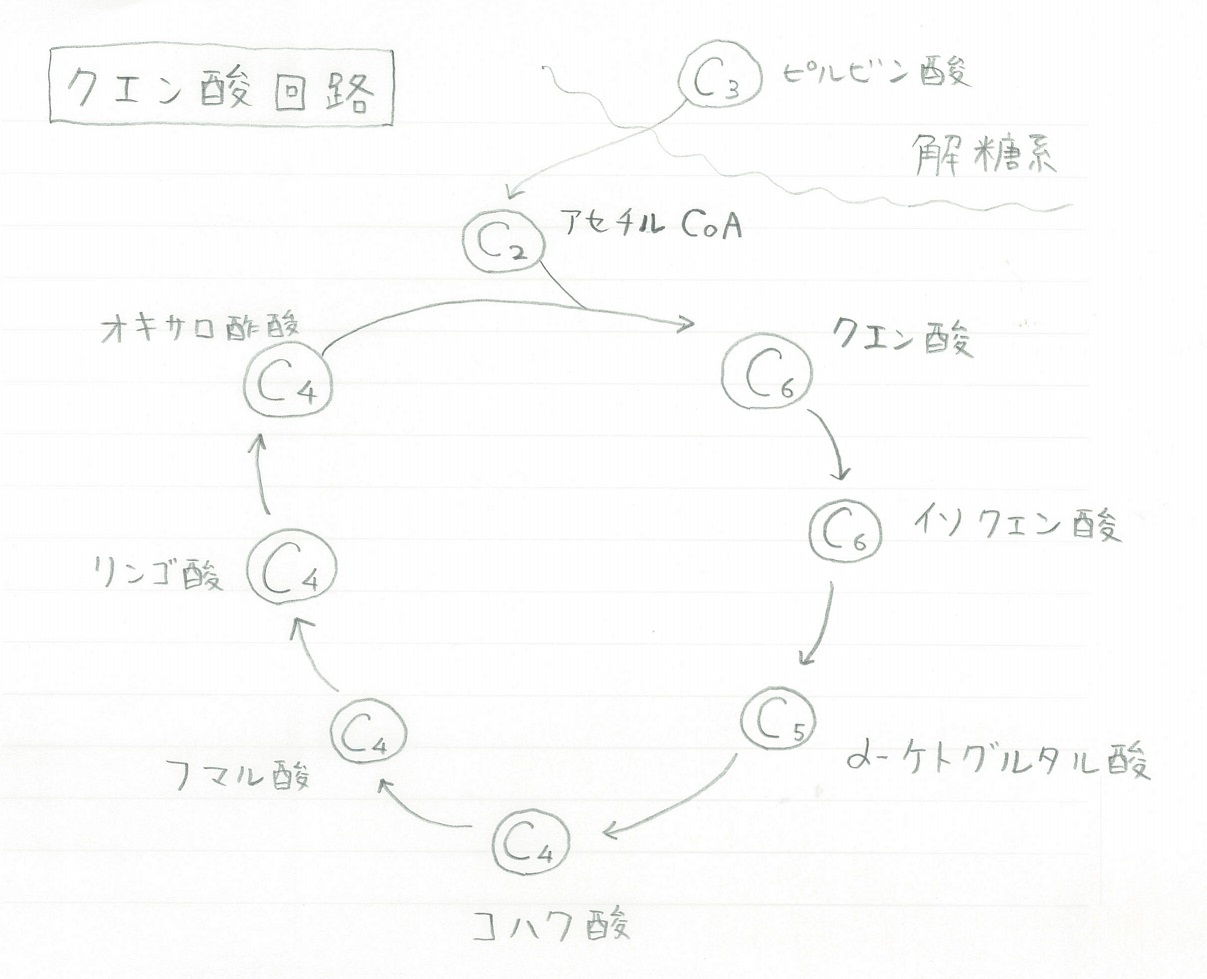 クエン酸回路
C3 ピルビン酸
解糖系
C2 アセチルCoA
オキサロ酢酸
C4
C6 クエン酸
C6 イソクエン酸
リンゴ酸 C4
C5
α-ケトグルタル酸
C4
フマル酸
C4
コハク酸